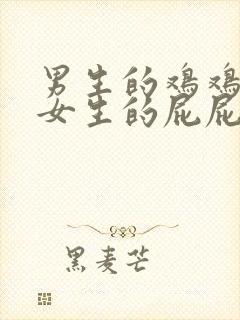 男生的鸡鸡
女生的屁屁
黑麦芒